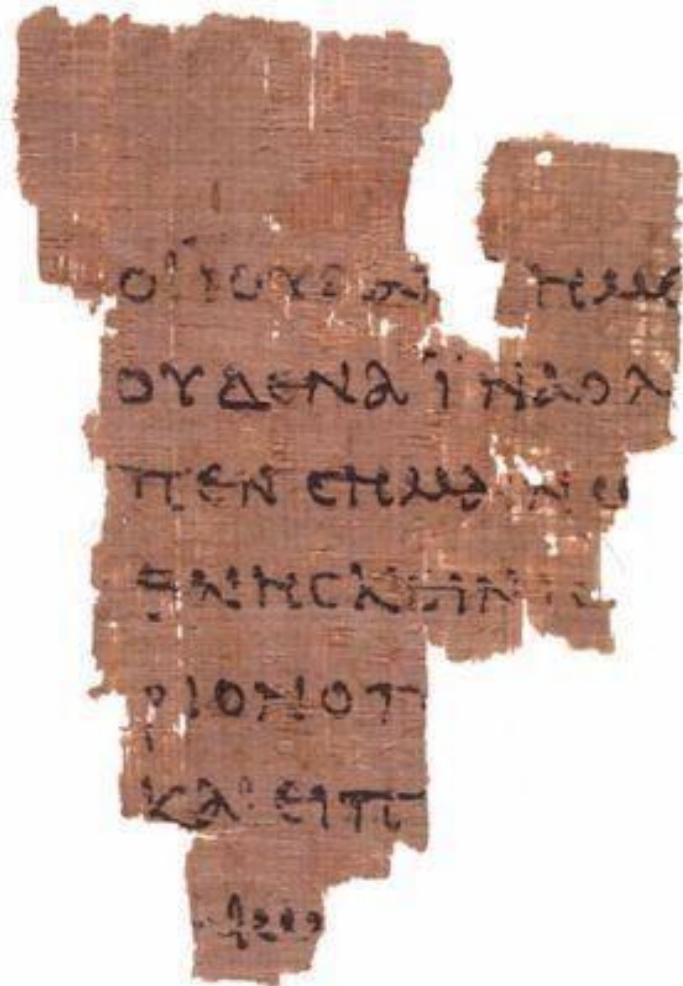 ΟΙ ΪΟΥΔΑΙ ΗΜΙ
ΟΥΔΕΝΑ ΪΝΑ Ο Λ
ΠΕΝ ϹΗΜΑΙΝΩ
ΘΝΗϹΚΕΙΝ ΙϹ
ΡΙΟΝ Ο Π
ΚΑΙ ΕΙΠ